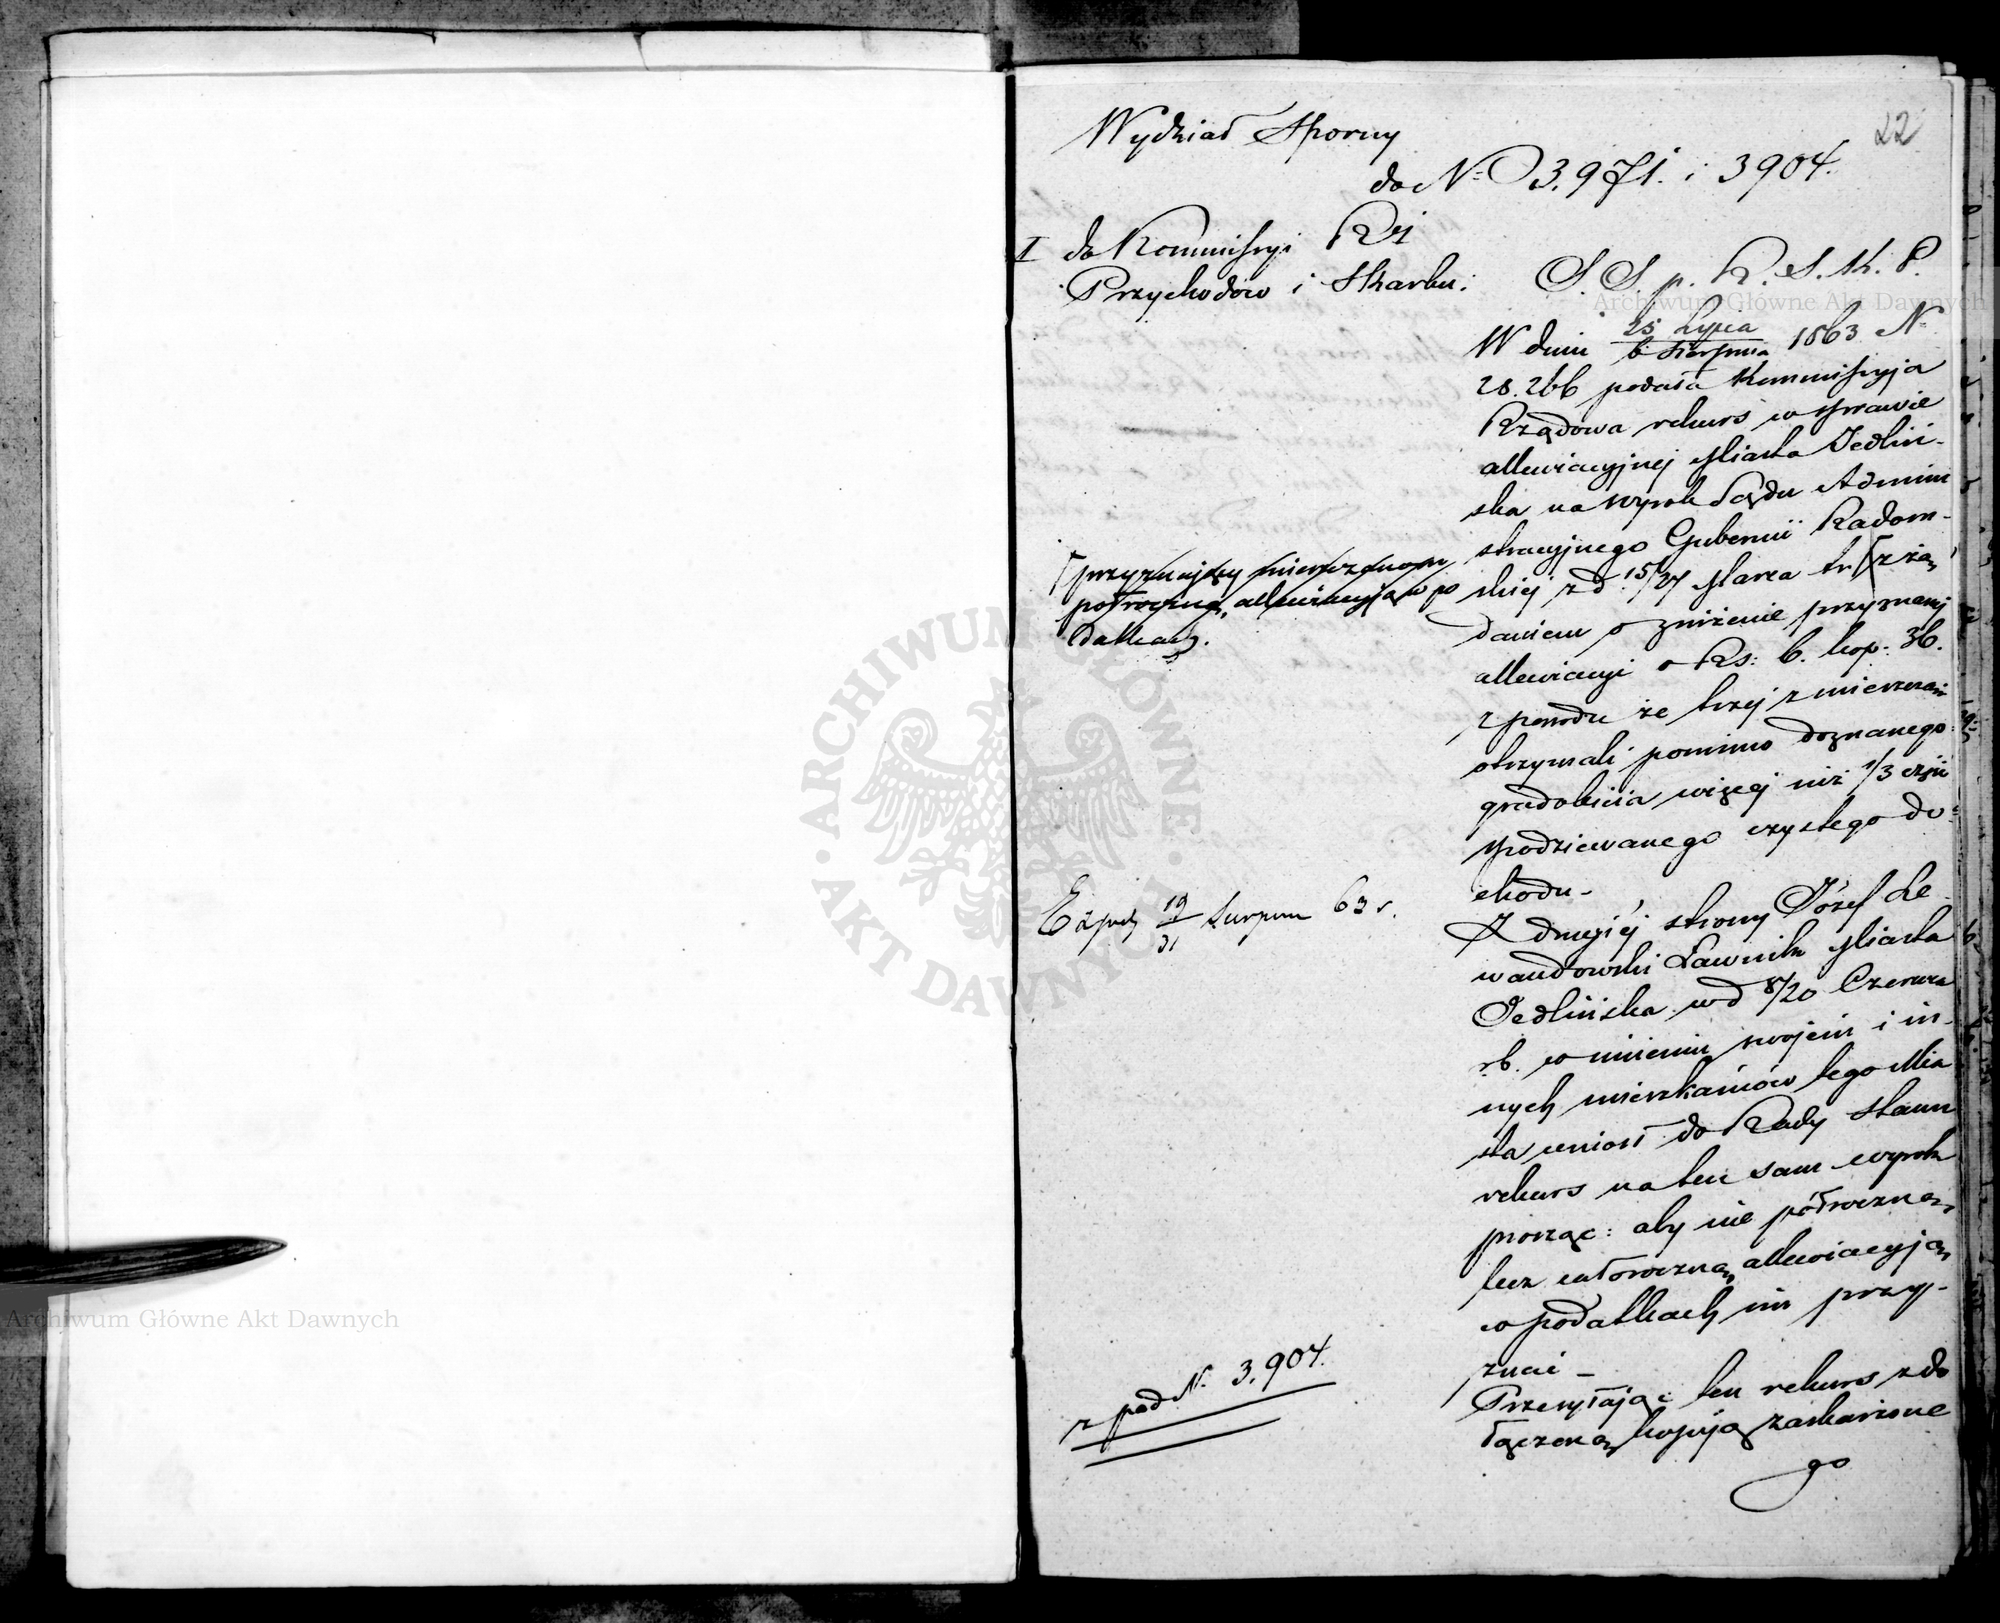 22
Wydział Sporny
do N. 3.971. i 3904.
I do Kommissyi Rz
Przychodów i Skarbu.
S. S. p. K. S. K. P.
Archiwum Główne Akt Dawnych
W dniu 25 Lipca / 6 Sierpnia 1863 N
28.266 podała Kommissyja
Rządowa rekurs w sprawie
allewiacyjnej Miasta Jedliń-
ska na wyrok Sądu Admini
stracyjnego Gubernii Radom-
skiej z d. 15/27 Marca tr z żą
daniem o zniżenie przyznanej
allewiacyi o Rs: 6. kop: 36.
z powodu że trzej z mieszczan
otrzymali pomimo doznanego
gradobicia więcej niż 1/3 część
spodziewanego czystego do-
chodu-
Z drugiéj strony Józef Le-
wandowski Ławnik Miasta
Jedlińska w d 8/20 Czerwca
r.b. w imieniu swojém i in-
nych mieszkańców tego Mia
sta wniósł do Rady Stanu
rekurs na ten sam wyrok
prosząc: aby nie półroczną,
lecz całoroczną allewiacyją
w podatkach im przy-
znać-
Przesyłając ten rekurs z do
łączoną kopiją zaskarżone
go
przyznający mieszczanom
półroczną allewiacyją w po
datkach.
Exped 19/31 Sierpnia 63 r.
z pod N. 3.904.
ARCHIWUM GŁÓWNE AKT DAWNYCH
Archiwum Główne Akt Dawnych